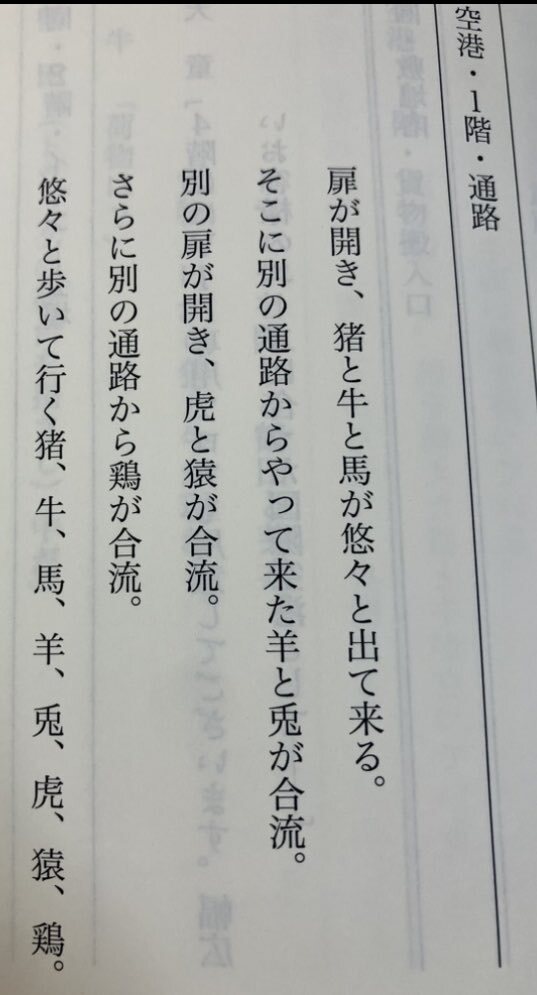 空港・1階・通路
扉が開き、猪と牛と馬が悠々と出て来る。
そこに別の通路からやって来た羊と兎が合流。
別の扉が開き、虎と猿が合流。
さらに別の通路から鶏が合流。
悠々と歩いて行く猪、牛、馬、羊、兎、虎、猿、鶏。